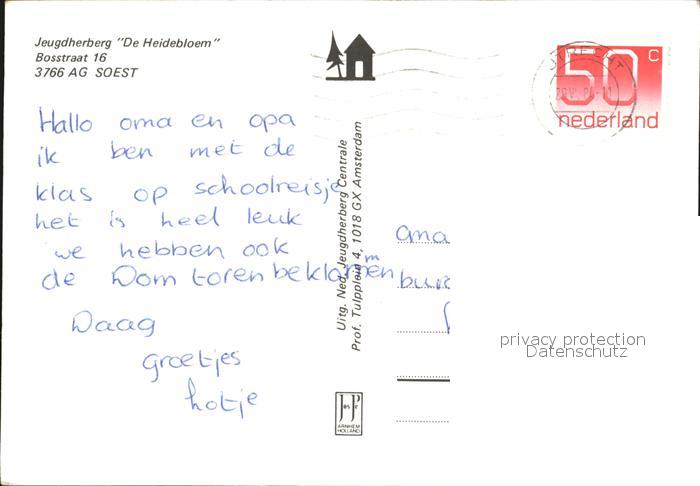 Jeugdherberg "De Heidebloem"
Bosstraat 16
3766 AG SOEST
Hallo oma en opa
ik ben met de
klas op schoolreisje
het is heel leuk
we hebben ook
de Dom toren beklommen
Daag
groetjes
hotje
Uitg. Ned. Jeugdherberg Centrale
Prof. Tulpplein 4, 1018 GX Amsterdam
ARNHEM
HOLLAND
UTRECHT
50 c
nederland
oma
privacy protection
Datenschutz